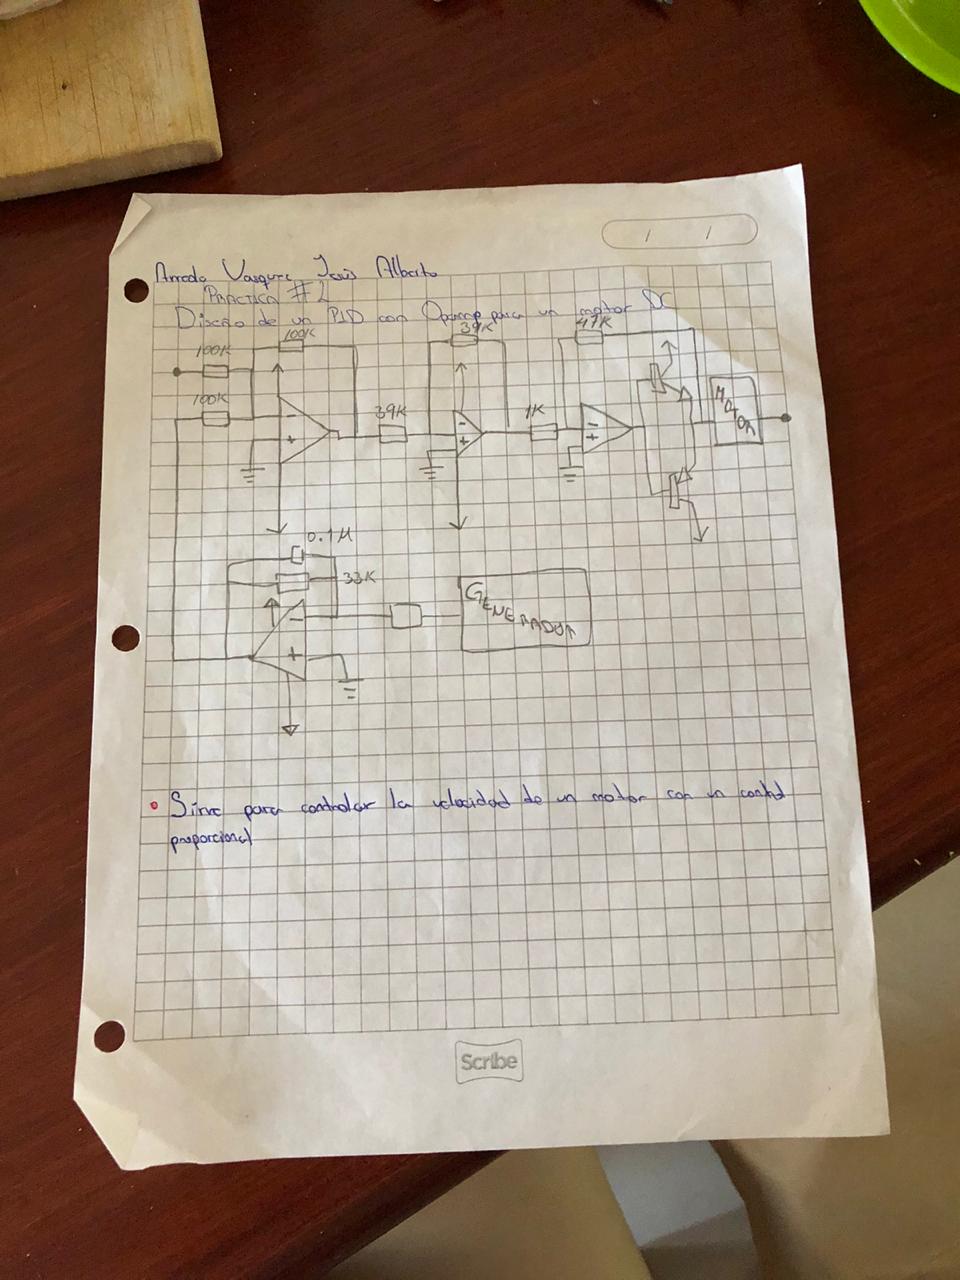 Vasquez Jesús Alberto
PRACTICA #2
Diseño de un PID con Opamp para un motor DC
100K
39K
47K
100K
100K
39K
1K
MOTOR
0.1M
33K
GENERADOR
Sirve para controlar la velocidad de un motor con un control
proporcional
Scribe